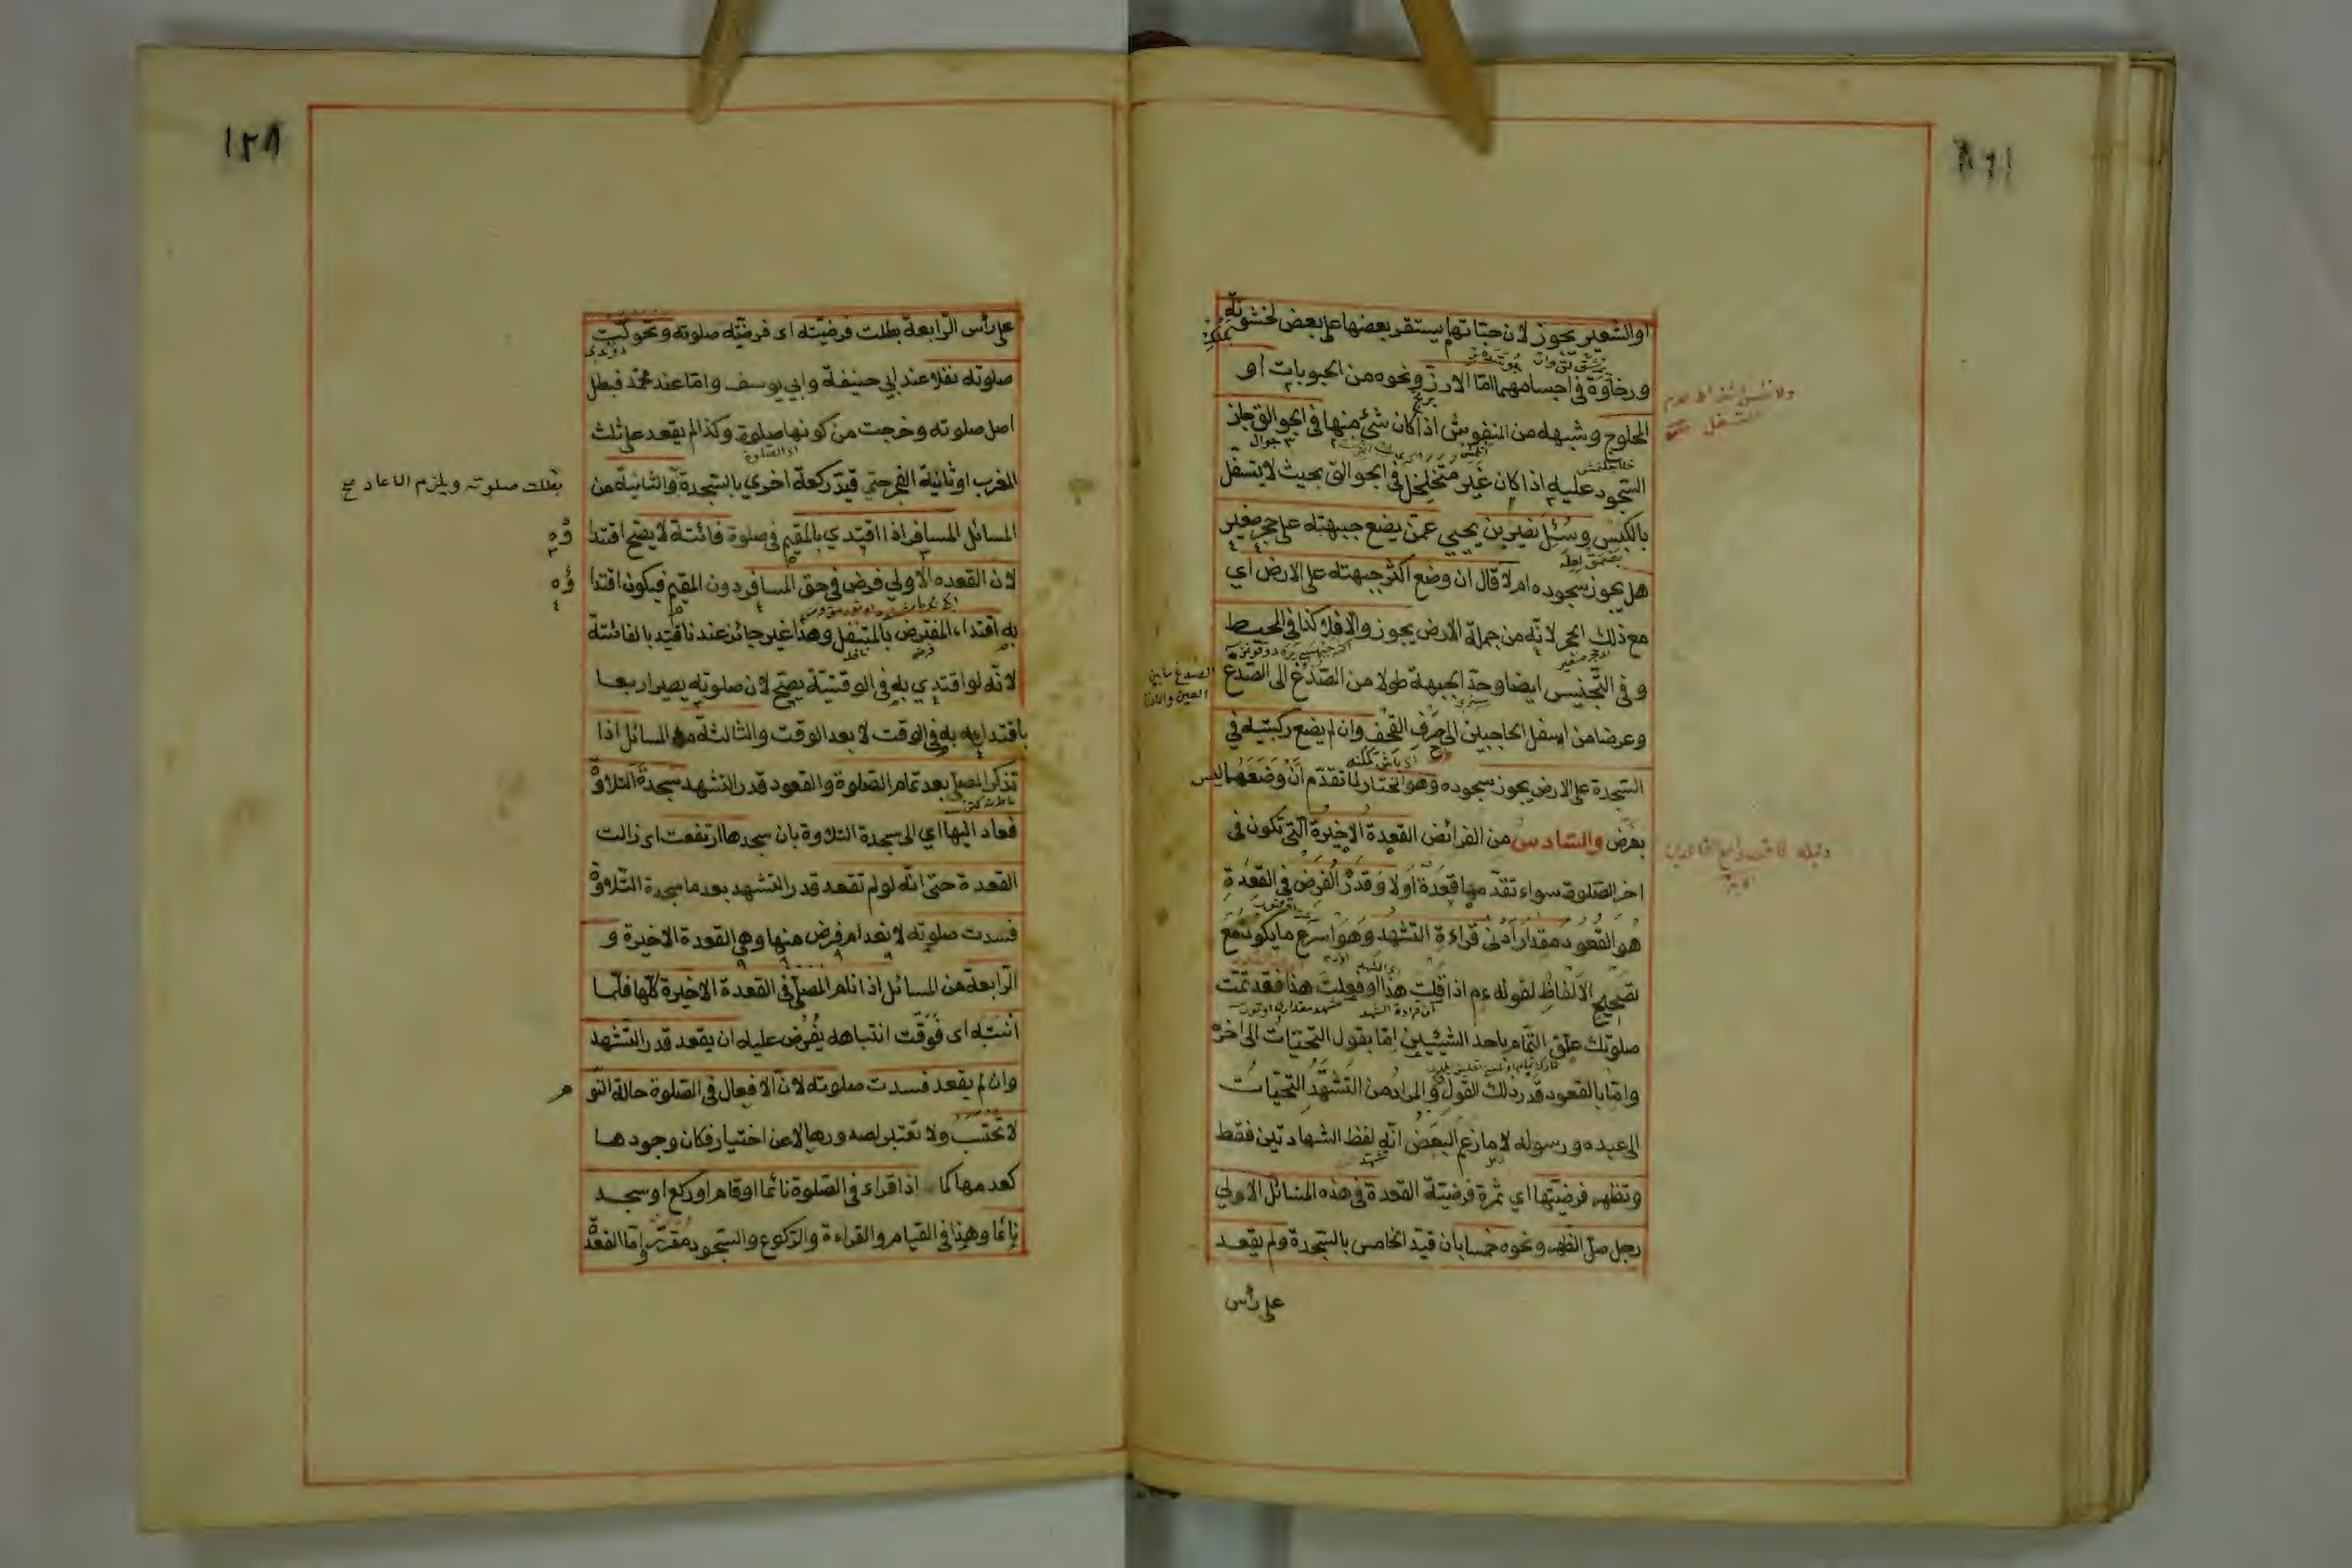 او الشعير يجوز لان حباتها يستقر بعضها على بعض لخشونة
ورخاوة في اجسامهما امّا الارز ونحوه من الحبوبات او
المحلوج وشبهه من المنفوش اذا كان شئ منها في الجوالق جاز
السجود عليه اذا كان غير متخلخل في الجوالق بحيث لا يتسفّل
بالكبس وسُئل نصير بن يحيى عمّن يضع جبهته على حجر صغير
هل يجوز سجوده ام لا قال ان وضع اكثر جبهته على الارض اي
مع ذلك الحجر لانّه من جملة الارض يجوز والا فلا كذا في المحيط
وفي التجنيس ايضا وحدّ الجبهة طولا من الصّدغ الى الصّدغ
الصدغ مابين
العين والاذن
وعرضا من اسفل الحاجبين الى القحف وان لم يضع ركبتيه في
السّجدة على الارض يجوز سجوده وهو المختار لما تقدّم انّ وضعهما ليس
بفرض والسّادس من الفرائض القعدة الاخيرة الّتي تكون في
اخر الصّلوة سواء تقدّمها قعدة اولا وقدر الفرض في القعدة
هو القعود مقدار ادنى قراءة التشهد وهو اسرع ما يكون مع
تصحيح الالفاظ لقوله عم اذا قلت هذا او فعلت هذا فقد تمّت
صلوتك علّق التّمام باحد الشيئين امّا بقول التحيّات الى اخره
وامّا بالقعود قدر ذلك القول والمراد من التّشهّد التحيّات
الى عبده ورسوله لا ما زعم البعض انّه لفظ الشهادتين فقط
وتظهر فرضيّتها اي ثمرة فرضيّة القعدة في هذه المسائل الاولى
رجل صلّى الظهر ونحوه خمسا بان قيّد الخامس بالسّجدة ولم يقعد
على رأس
١٢٨
على رأس الرّابعة بطلت فرضيّته اى فرضيّة صلوته وتحوّلت
صلوته نفلا عند ابي حنيفة وابي يوسف وامّا عند محمّد فبطل
اصل صلوته وخرجت من كونها صلوة وكذا لم يقعد على ثلث
المغرب او ثانية الفجر حتى قيّد ركعة اخرى بالسّجدة والثانية من
بطلت صلوته ويلزم الاعاد صح
المسائل المسافر اذا اقتدى بالمقيم في صلوة فائتة لا يصحّ اقتدا
ؤه
لان القعدة الاولى فرض في حق المسافر دون المقيم فيكون اقتدا
ؤه
به اقتداء المفترض بالمتنفل وهذا غير جائز عندنا قيّد بالفائتة
لانّه لو اقتدى به في الوقتيّة يصحّ لان صلوته يصير اربعا
باقتدائه به في الوقت لا بعد الوقت والثالثة من المسائل اذا
تذكّر المصلّي بعد تمام الصّلوة والقعود قدر التشهد سجدة التلاوة
فعاد اليها اي الى سجدة التلاوة بان سجدها ارتفعت اى زالت
القعدة حتى انّه لو لم تقعد قدر التشهد بعد ما سجدة التّلاوة
فسدت صلوته لانعدام فرض منها وهي القعدة الاخيرة و
الرّابعة من المسائل اذا نام المصلّي في القعدة الاخيرة كلّها فلمّا
انتبه اى فوقت انتباهه يفرض عليه ان يقعد قدر التّشهد
وان لم يقعد فسدت صلوته لانّ الافعال في الصّلوة حالة النّو
م
لا تحتسب ولا تعتبر لصدورها لا عن اختيار فكان وجودها
كعدمها كما اذا قراء في الصّلوة نائما او قام او ركع او سجد
نائما وهذا في القيام والقراءة والرّكوع والسّجود مقرّر وامّا القعدة